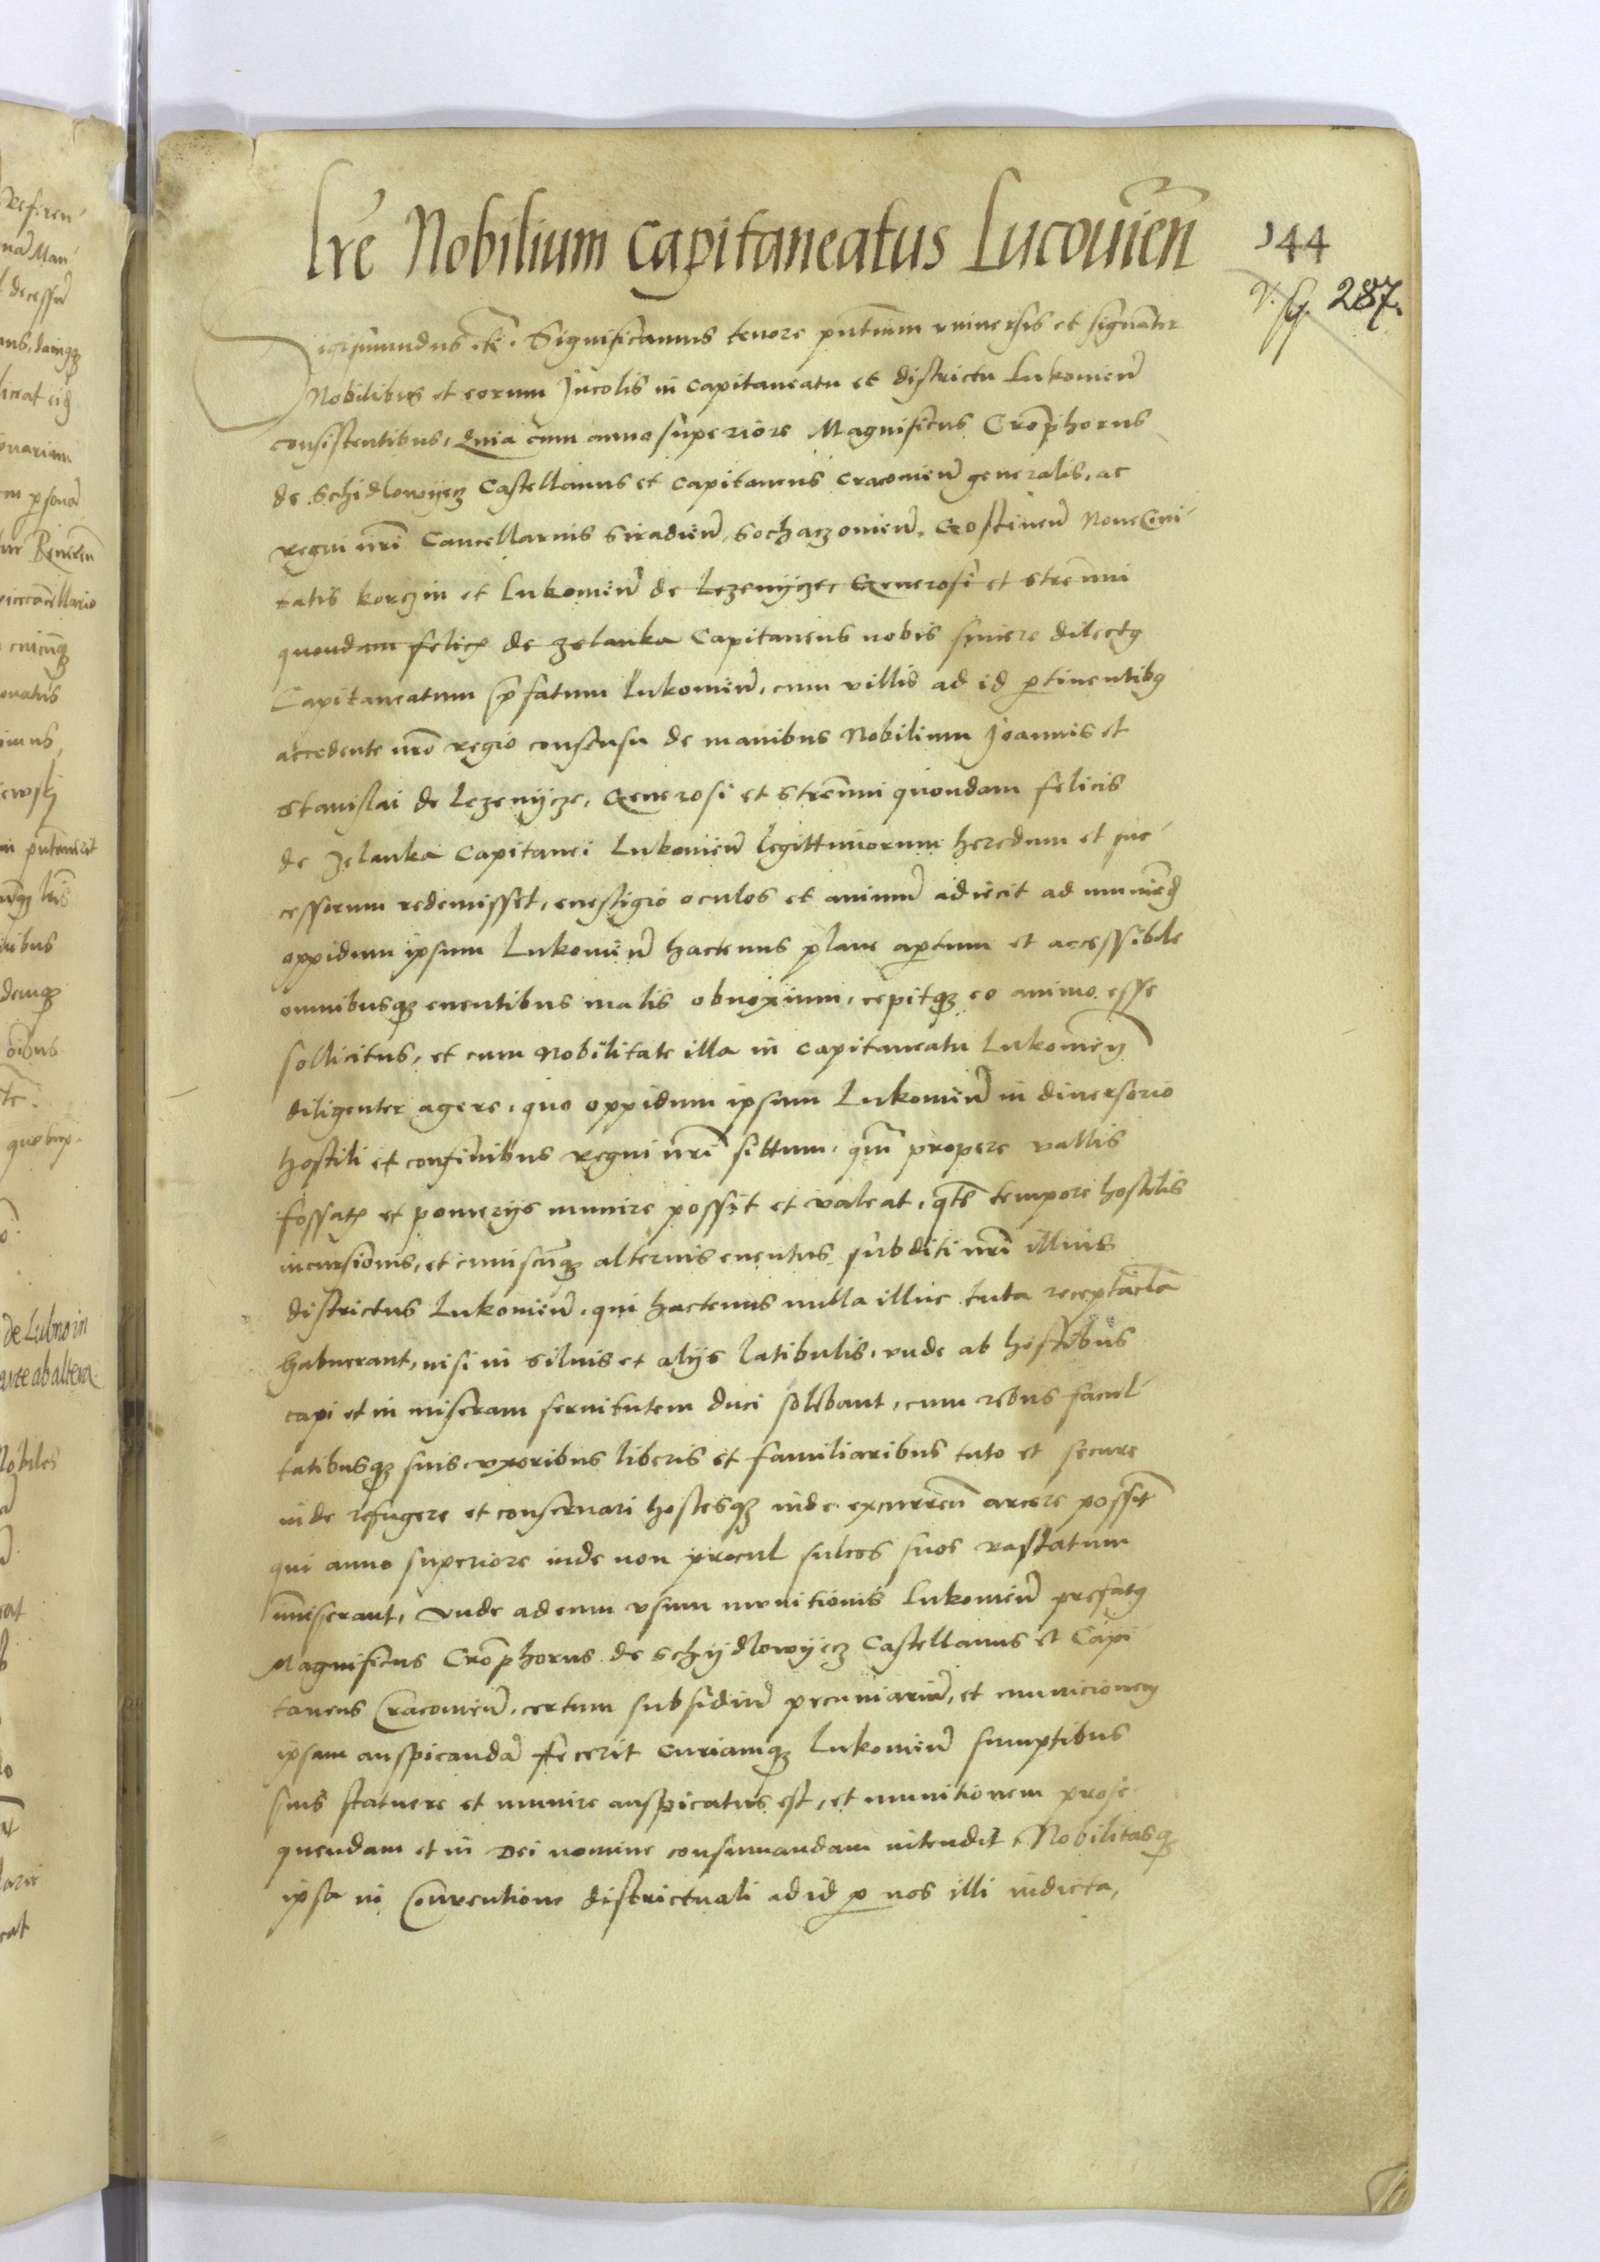 lre Nobilium Capitaneatus Lucouien
144
287.
Sigismundus etc. Significamus tenore pntium vniuersis et signanter
Nobilibus et eorum Incolis in Capitaneatu et districtu Lukouien
consistentibus, Quia cum anno superiore Magnificus Cropherus
de Schidlowyecz Castellanus et Capitaneus Cracouien generalis, ac
regni nri Cancellarius Siradien, Sochaczouien, Gostinen Noueciui-
tatis korczin et Lukouien de Lezenycze, Generosi et strenui
quondam felicis de zelanka Capitaneus nobis sincere dilectus
Capitaneatum pfatum Lukouien, cum villis ad id ptinentibus
accedente nro regio consensu de manibus Nobilium Joannis et
Stanislai de Lezenycze, Generosi et strenui quondam felicis
de Zelanka Capitanei Lukouien legittimorum heredum et suc-
cessorum redemisset, euestigio oculos et animu adiecit ad muniend
oppidum ipsum Lukouien hactenus plane aptum et accessibile
omnibusq euentibus malis obnoxium, cepitq eo animo esse
sollicitus, et cum Nobilitate illa in Capitaneatu Lukouien
diligenter agere, quo oppidum ipsum Lukouien in diuersorio
hostili et confinibus regni nri sittum, qm propere vallis
fossatis et pomerijs munire possit et valeat, qte tempore hostilis
incursionis, et cuiuscunq alterius euentus subditi nri illius
districtus Lukouien, qui hactenus nulla illuc tuta receptacla
habuerant, nisi in siluis et alijs latibulis, vnde ab hostibus
capi et in miseram seruitutem duci solebant, cum rebus facul-
tatibusq suis, vxoribus liberis et familiaribus tuto et secure
inde refugere et conseruari hostesq inde excurren arcere possint
qui anno superiore inde non procul sulcos suos vastatum
imiserant, Vnde ad eum vsum munitionis Lukouien prefatus
Magnificus Cropherus de Schydlowyecz Castellanus et Capi-
taneus Cracouien, certum subsidiu pecuniariu, et municionem
ipsam auspicanda fecerit Curiamq Lukouien sumptibus
suis statuere et munire auspicatus est, et munitionem prose-
quendam et in Dei nomine consumandam intendit, Nobilitasq
ipsa in Conuentione districtuali ad id p nos illi indicta,